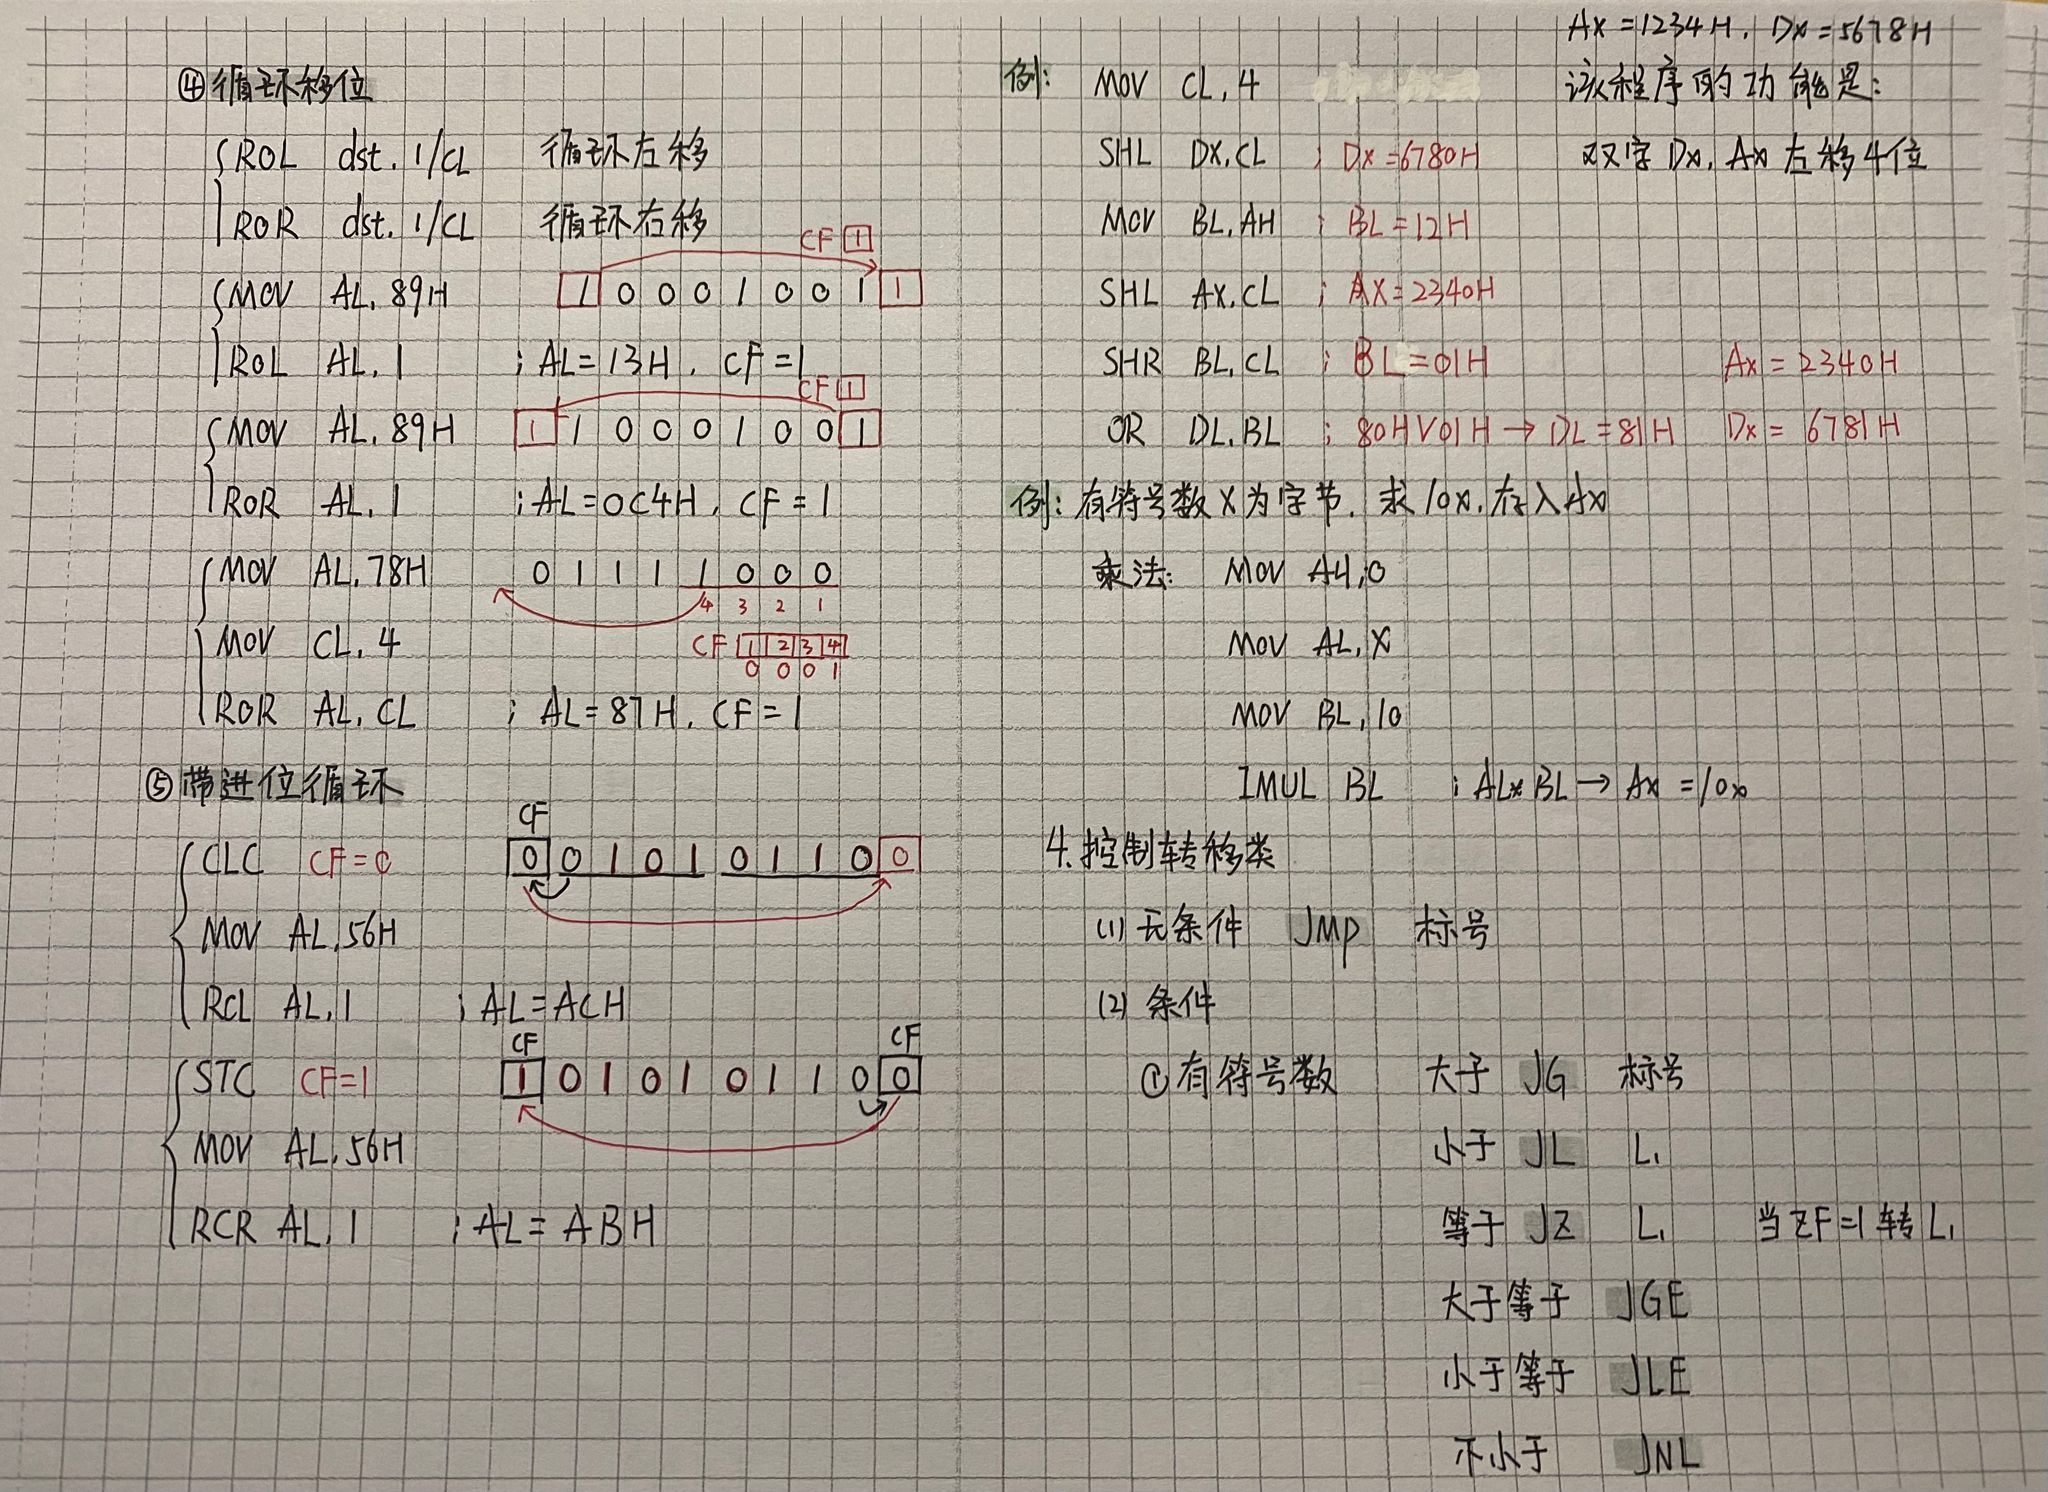 ④循环移位
ROL dst. 1/CL 循环左移
ROR dst. 1/CL 循环右移
CF 1
MOV AL. 89H 1 0 0 0 1 0 0 1 1
ROL AL. 1 ; AL=13H. CF=1
CF 1
MOV AL. 89H 1 1 0 0 0 1 0 0 1
ROR AL. 1 ; AL=0C4H. CF=1
MOV AL. 78H 0 1 1 1 1 0 0 0
4 3 2 1
MOV CL. 4 CF 1 2 3 4
0 0 0 1
ROR AL. CL ; AL=87H. CF=1
⑤带进位循环
CF
CLC CF=0 0 0 1 0 1 0 1 1 0 0
MOV AL.56H
RCL AL.1 ; AL=ACH
CF CF
STC CF=1 1 0 1 0 1 0 1 1 0 0
MOV AL.56H
RCR AL.1 ; AL=ABH
AX=1234H. DX=5678H
例: MOV CL,4 该程序的功能是:
SHL DX,CL ; DX=6780H 双字DX,AX左移4位
MOV BL,AH ; BL=12H
SHL AX,CL ; AX=2340H
SHR BL,CL ; BL=01H AX=2340H
OR DL,BL ; 80H∨01H→DL=81H DX=6781H
例:有符号数X为字节.求10X,存入AX
乘法: MOV AH,0
MOV AL,X
MOV BL,10
IMUL BL ; AL×BL→AX=10X
4.控制转移类
(1)无条件 JMP 标号
(2)条件
①有符号数 大于 JG 标号
小于 JL L1
等于 JZ L1 当ZF=1转L1
大于等于 JGE
小于等于 JLE
不小于 JNL